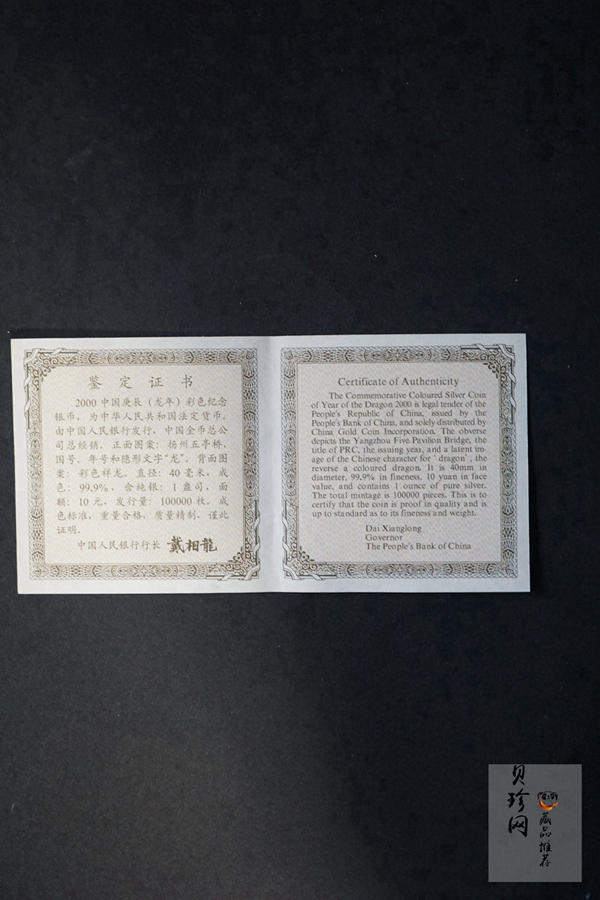 鉴定证书
2000中国庚辰（龙年）彩色纪念
银币，为中华人民共和国法定货币，
由中国人民银行发行，中国金币总公
司总经销。正面图案：扬州五亭桥、
国号、年号和隐形文字“龙”。背面图
案：彩色祥龙。直径：40毫米，成
色：99.9%，含纯银：1盎司，面
额：10元，发行量：100000枚。成
色标准，重量合格，质量精制，谨此
证明。
中国人民银行行长 戴相龍
Certificate of Authenticity
The Commemorative Coloured Silver Coin
of Year of the Dragon 2000 is legal tender of the
People's Republic of China, issued by the
People's Bank of China, and solely distributed by
China Gold Coin Incorporation. The obverse
depicts the Yangzhou Five Pavilion Bridge, the
title of PRC, the issuing year, and a latent im-
age of the Chinese character for ' dragon ', the
reverse a coloured dragon. It is 40mm in
diameter, 99.9% in fineness, 10 yuan in face
value, and contains 1 ounce of pure silver.
The total mintage is 100000 pieces. This is to
certify that the coin is proof in quality and is
up to standard as to its fineness and weight.
Dai Xianglong
Governor
The People's Bank of China
贝珍网
藏品推荐